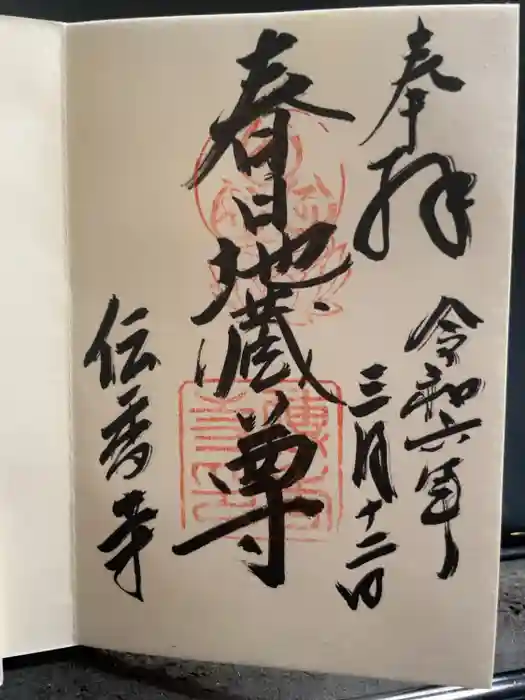 奉拝
令和六年
三月十二日
春日地蔵尊
伝香寺